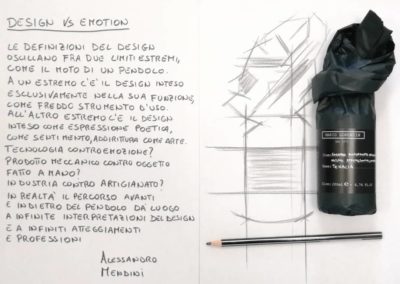 DESIGN VS EMOTION
LE DEFINIZIONI DEL DESIGN
OSCILLANO FRA DUE LIMITI ESTREMI,
COME IL MOTO DI UN PENDOLO.
A UN ESTREMO C'È IL DESIGN INTESO
ESCLUSIVAMENTE NELLA SUA FUNZIONE,
COME FREDDO STRUMENTO D'USO.
ALL'ALTRO ESTREMO C'È IL DESIGN
INTESO COME ESPRESSIONE POETICA,
COME SENTIMENTO, ADDIRITTURA COME ARTE.
TECNOLOGIA CONTRO EMOZIONE?
PRODOTTO MECCANICO CONTRO OGGETTO
FATTO A MANO?
INDUSTRIA CONTRO ARTIGIANATO?
IN REALTÀ IL PERCORSO AVANTI
E INDIETRO DEL PENDOLO DÀ LUOGO
A INFINITE INTERPRETAZIONI DEL DESIGN
E A INFINITI ATTEGGIAMENTI
E PROFESSIONI
ALESSANDRO
MENDINI